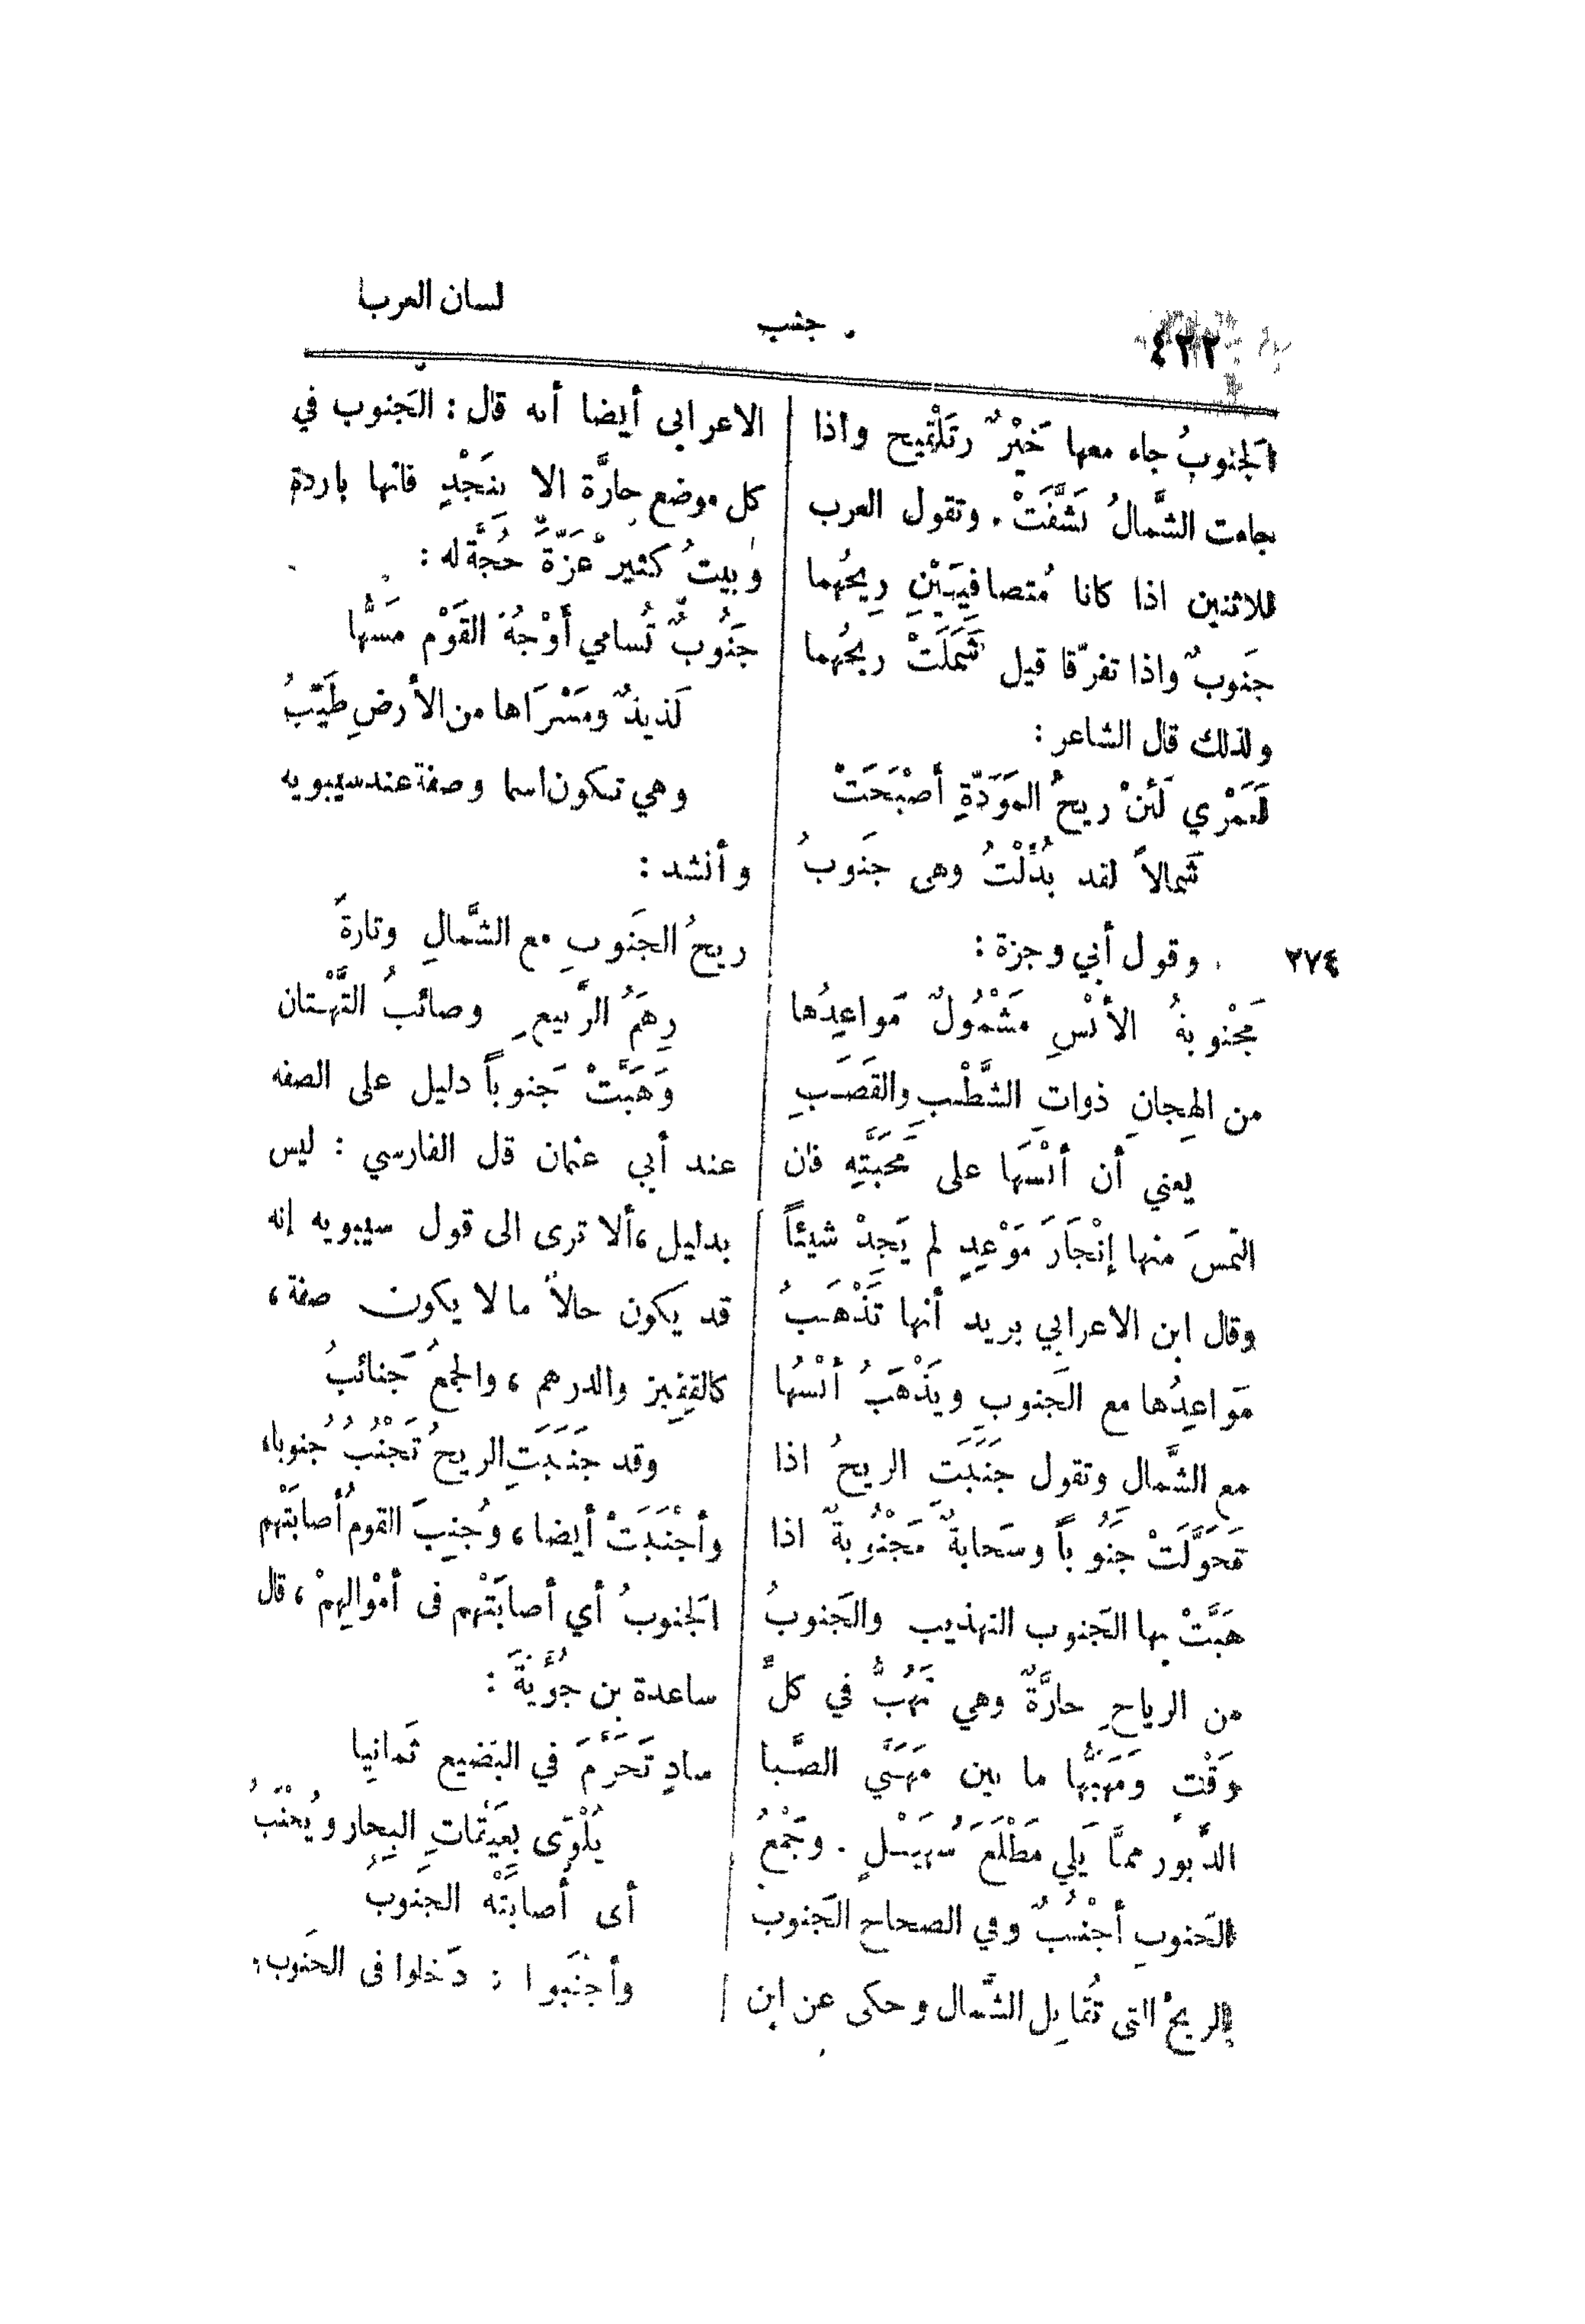 ٤٢٢
جنب
لسان العرب
الجَنوبُ جاء معها خَيْرٌ وتَلْقيح واذا
جاءت الشَّمالُ نَشَّفَتْ. وتقول العرب
للاثنين اذا كانا مُتصافِيَيْنِ رِيحُهما
جَنوبٌ واذا تفرّقا قيل شَمَلَتْ ريحُهما
ولذلك قال الشاعر :
لَعَمْري لَئنْ ريحُ المَوَدّةِ أصْبَحَتْ
شَمالاً لقد بُدِّلْتُ وهى جَنوبُ
وقول أبي وجزة :
٢٧٤
مَجْنوبةُ الأنْسِ مَشْمُولٌ مَواعِدُها
من الهِجانِ ذواتِ الشَّطْبِ والقَصَبِ
يعني أن أنْسَها على مَحَبَّتِهِ فان
التمسَ منها إنْجَازَ مَوْعِدٍ لم يَجِدْ شيئاً
وقال ابن الاعرابي يريد أنها تَذْهَبُ
مَواعِدُها مع الجَنوبِ ويَذْهَبُ أنْسُها
مع الشَّمالِ وتقول جَنَبَتِ الريحُ اذا
تَحَوَّلَتْ جَنُوباً وسَحابةٌ مَجْنُوبةٌ اذا
هَبَّتْ بها الجَنوب التهذيب والجَنوبُ
من الرياحِ حارَّةٌ وهي تَهُبُّ في كلِّ
وَقْتٍ ومَهَبُّها ما بين مَهَبَّيِ الصَّبا
الدَّبُورِ ممَّا يَلي مَطْلَعَ سُهَيْلٍ. وجَمْعُ
الجَنوبِ أجْنُبٌ وفي الصحاح الجَنوب
الريحُ التى تُقابِل الشَّمال وحكى عن ابن
الاعرابي أيضا أنه قال : الجَنوب في
كل موضع حارَّة الا بنَجْدٍ فانها باردة
وبيتُ كثير عَزَّةَ حُجَّة له :
جَنُوبٌ تُسامي أوْجُهَ القَوْم مَسُّها
لَذيذٌ ومَسْرَاها من الأرضِ طَيِّبُ
وهي تكون اسما وصفة عند سيبويه
وأنشد :
ريحُ الجَنوبِ مع الشَّمالِ وتارةً
رِهَمُ الرَّبيعِ وصائبُ التَّهْتان
وَهَبَّتْ جَنوباً دليل على الصفه
عند أبي عثمان قل الفارسي : ليس
بدليل، ألا ترى الى قول سيبويه إنه
قد يكون حالاً ما لا يكون صفة،
كالقِفِيز والدرهم، والجمعُ جَنائبُ
وقد جَنَبَتِ الريحُ تَجْنُبُ جُنوبا،
وأجْنَبَتْ أيضا، وجُنِبَ القومُ أصابَتْهم
الجَنوبُ أي أصابَتْهم فى أمْوالِهِمْ، قال
ساعدة بن جُؤَيَّةَ :
سادٍ تَجَرَّمَ في البَضيع ثَمانِيا
يُلْوَى بِعَيْقاتِ البِحارِ ويُجْنَبُ
أى أصابَتْه الجَنوبُ
وأجْنَبوا : دَخلوا فى الجَنوب.